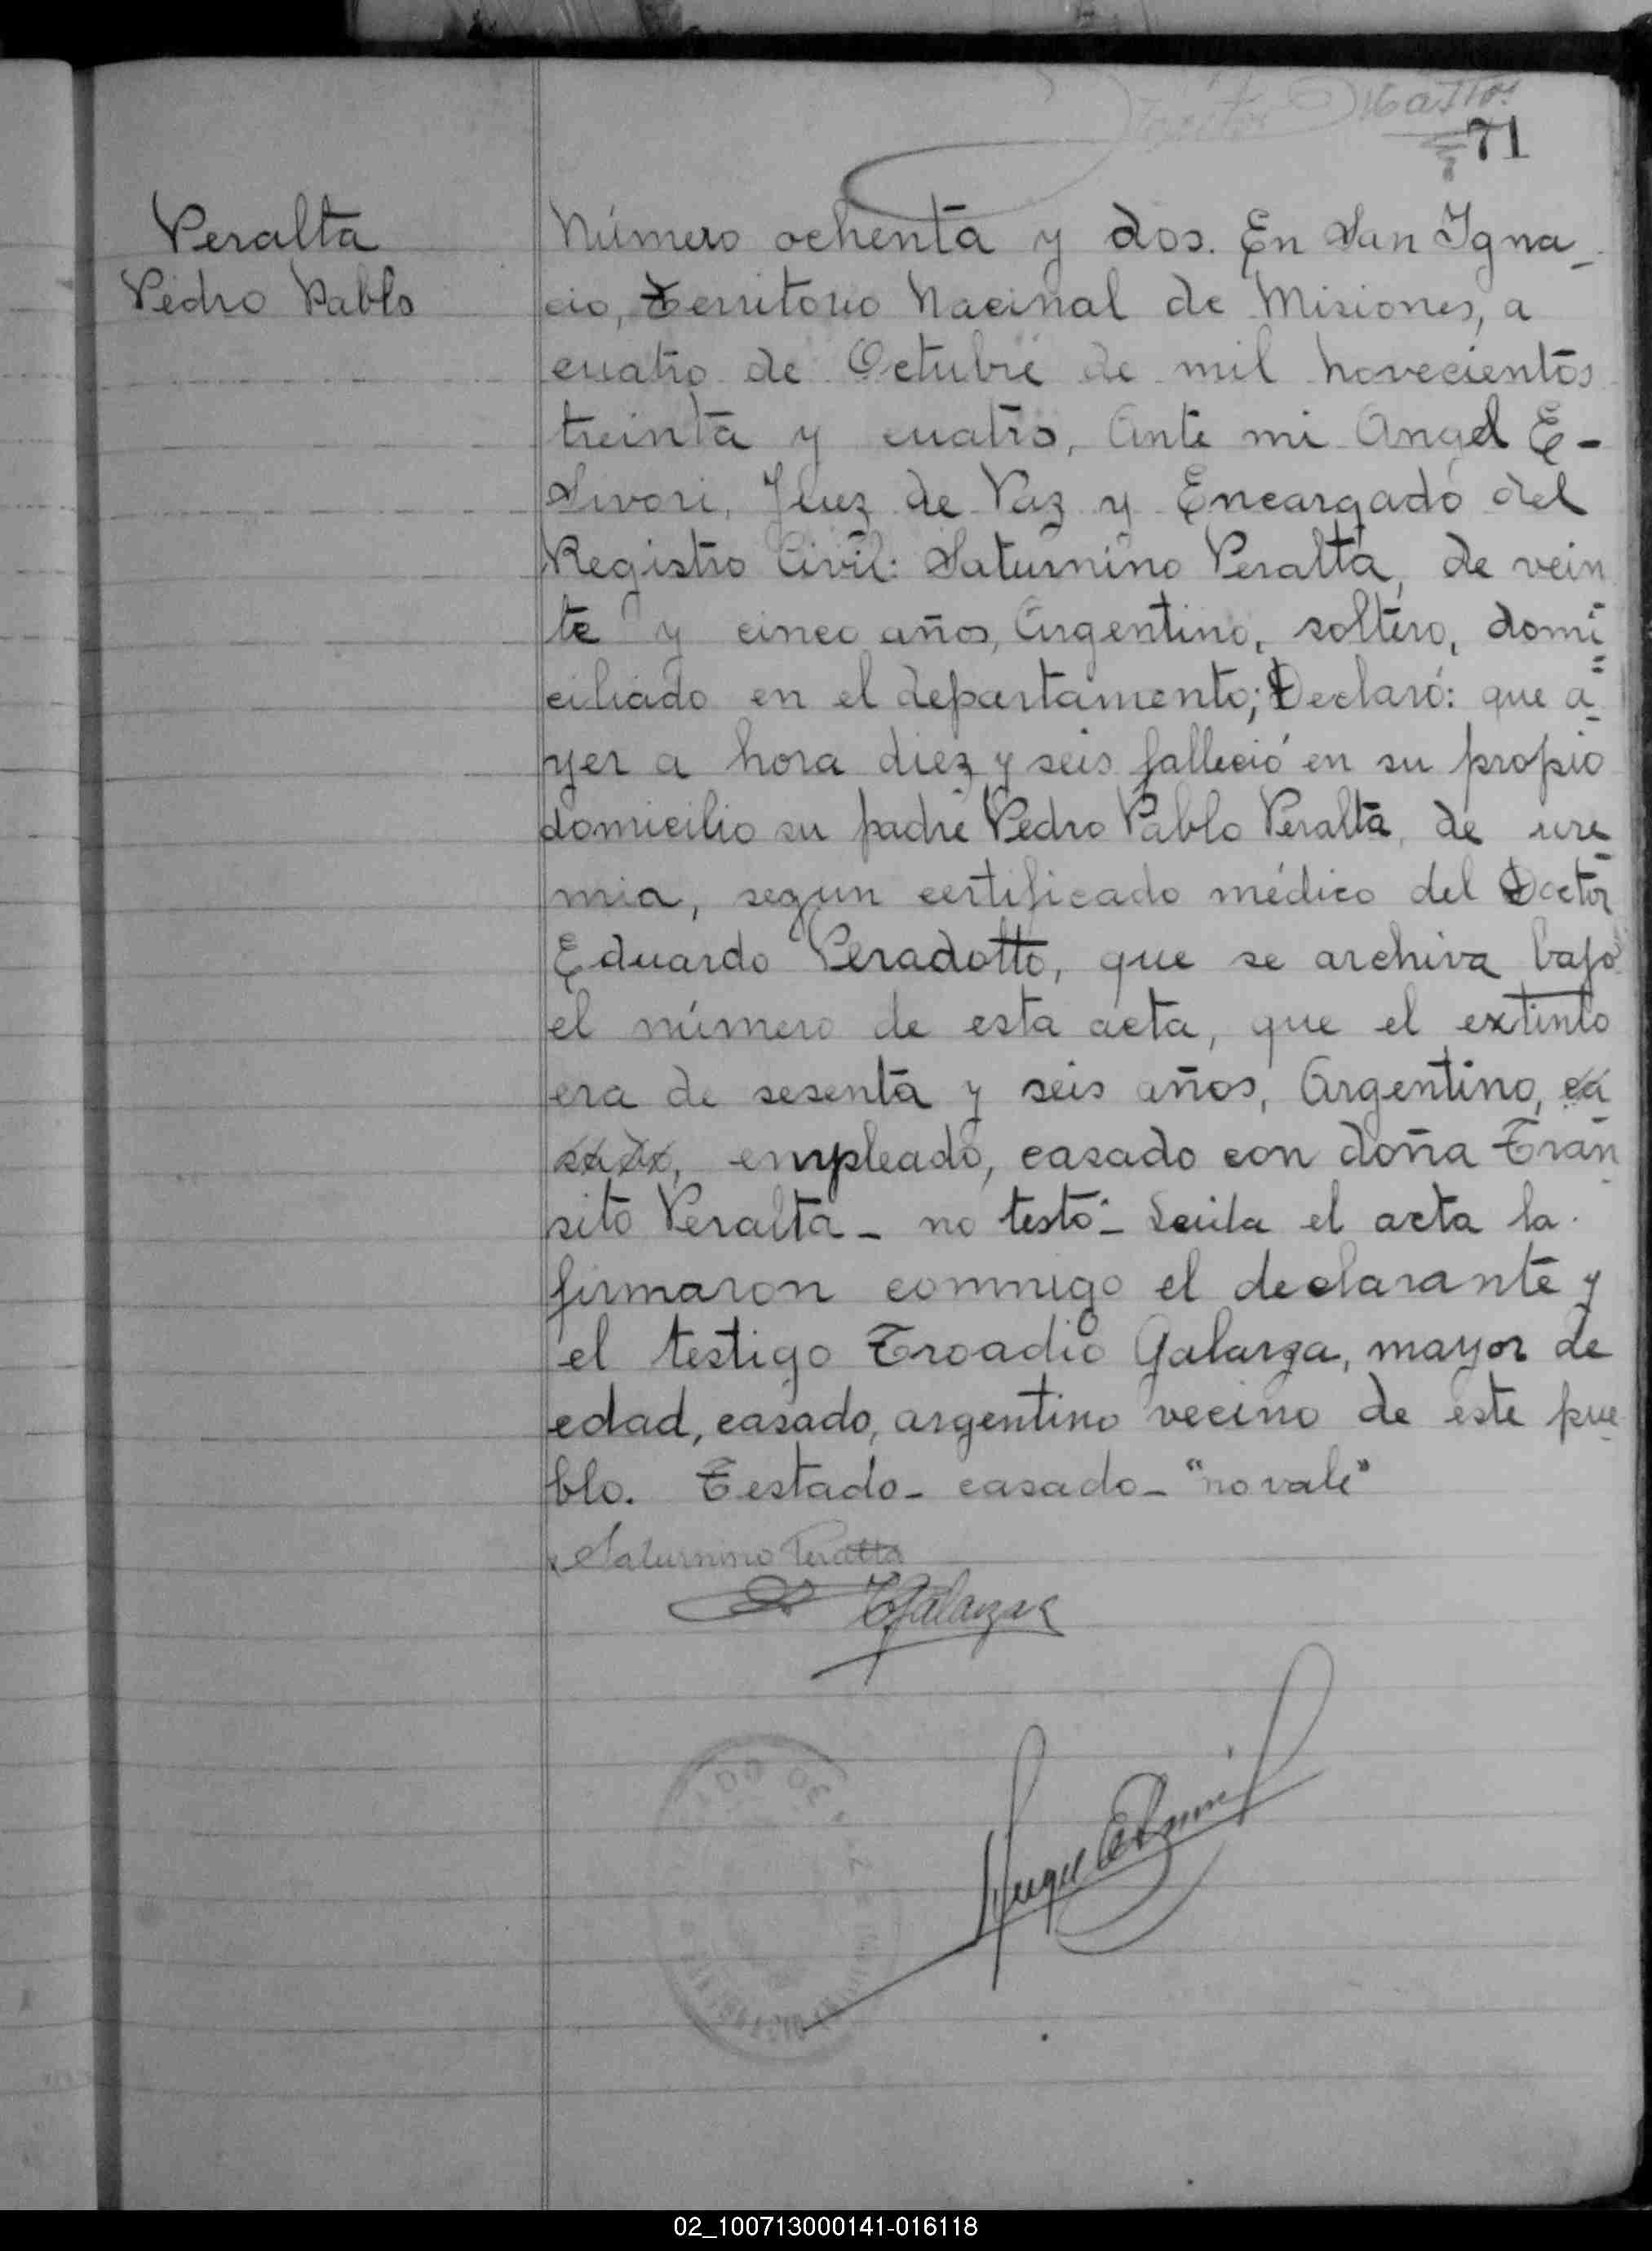 71
Peralta
Pedro Pablo
Número ochenta y dos. En San Igna-
cio, Territorio Nacinal de Misiones, a
cuatro de Octubre de mil novecientos
treinta y cuatro, Ante mi Angel E-
Sivori, Juez de Paz y Encargado del
Registro Civil: Saturnino Peralta, de vein
te y cinco años, Argentino, soltero, domi=
ciliado en el departamento; Declaró: que a-
yer a hora diez y seis falleció en su propio
domicilio su padre Pedro Pablo Peralta, de ure-
mia, segun certificado médico del Doctor
Eduardo Peradotto, que se archiva bajo
el número de esta acta, que el extinto
era de sesenta y seis años, Argentino, ca
sado, empleado, casado con doña Trán-
sito Peralta - no testó - Leida el acta la
firmaron conmigo el declarante y
el testigo Troadio Galarza, mayor de
edad, casado, argentino vecino de este pue-
blo. Testado - casado - "no vale"
Saturnino Peralta
TGalarza
02_100713000141-016118